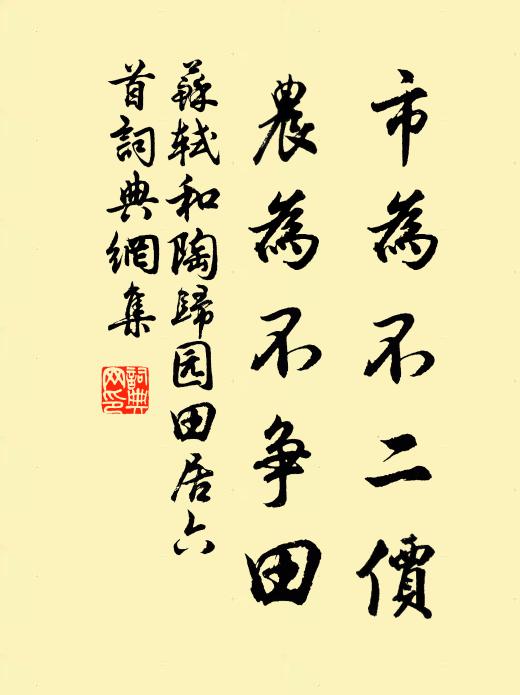 市為不二價
農為不爭田
蘇軾和陶歸园田居六
首詞典網集
詞典
网印